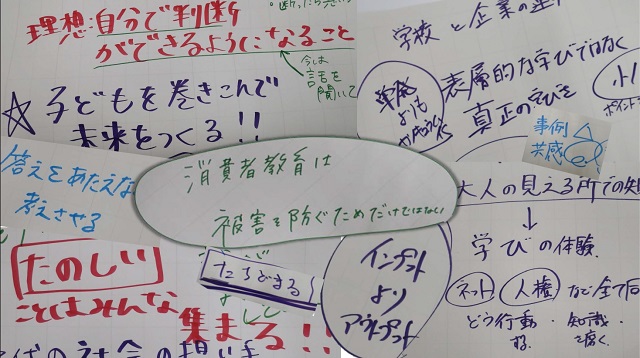 断ったら
理想:自分で判断
ができるようになること
今は
話を
聞いて
☆子どもを巻きこんで
未来をつくる!!
答えをあたえな
考えさせる
たのしい
ことはみんな
集まる!!
社会の担い手
消費者教育は
被害を防ぐためだけではない
たちどまる
インプット
より
アウトプット
学校と企業の連
表層的な学びではなく
真正の学びを
単発
よりも
ポイント
事例
共感
大人の見える所での失
↓
学びの体験
ネット 人権 など全て同
どう行動 ・ 知識
する